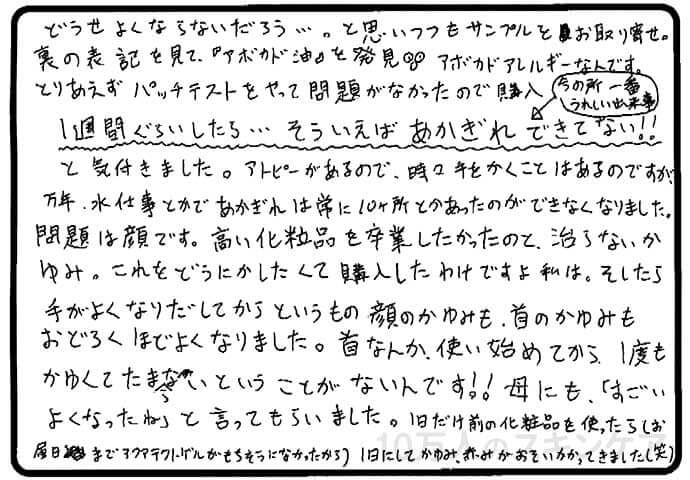 どうせよくならないだろう…。と思いつつもサンプルをお取り寄せ。
裏の表記を見て、『アボカド油』を発見 アボカドアレルギーなんです。
とりあえずパッチテストをやって問題がなかったので購入
今の所一番
うれしい出来事
1週間ぐらいしたら…そういえばあかぎれできてない!!
と気付きました。アトピーがあるので、時々手をかくことはあるのですが、
万年、水仕事とかであかぎれは常に10ヶ所とかあったのができなくなりました。
問題は顔です。高い化粧品を卒業したかったのと、治らないか
ゆみ。これをどうにかしたくて購入したわけですよ私は。そしたら
手がよくなりだしてからというもの顔のかゆみも、首のかゆみも
おどろくほどよくなりました。首なんか、使い始めてから、1度も
かゆくてたまらないということがないんです!! 母にも、「すごい
よくなったね」と言ってもらいました。1日だけ前の化粧品を使ったら(お
届日までアクアテクトゲルがもちそうになかったから) 1日にしてかゆみ、赤みがおそいかかってきました(笑)
10万人のスキンケア